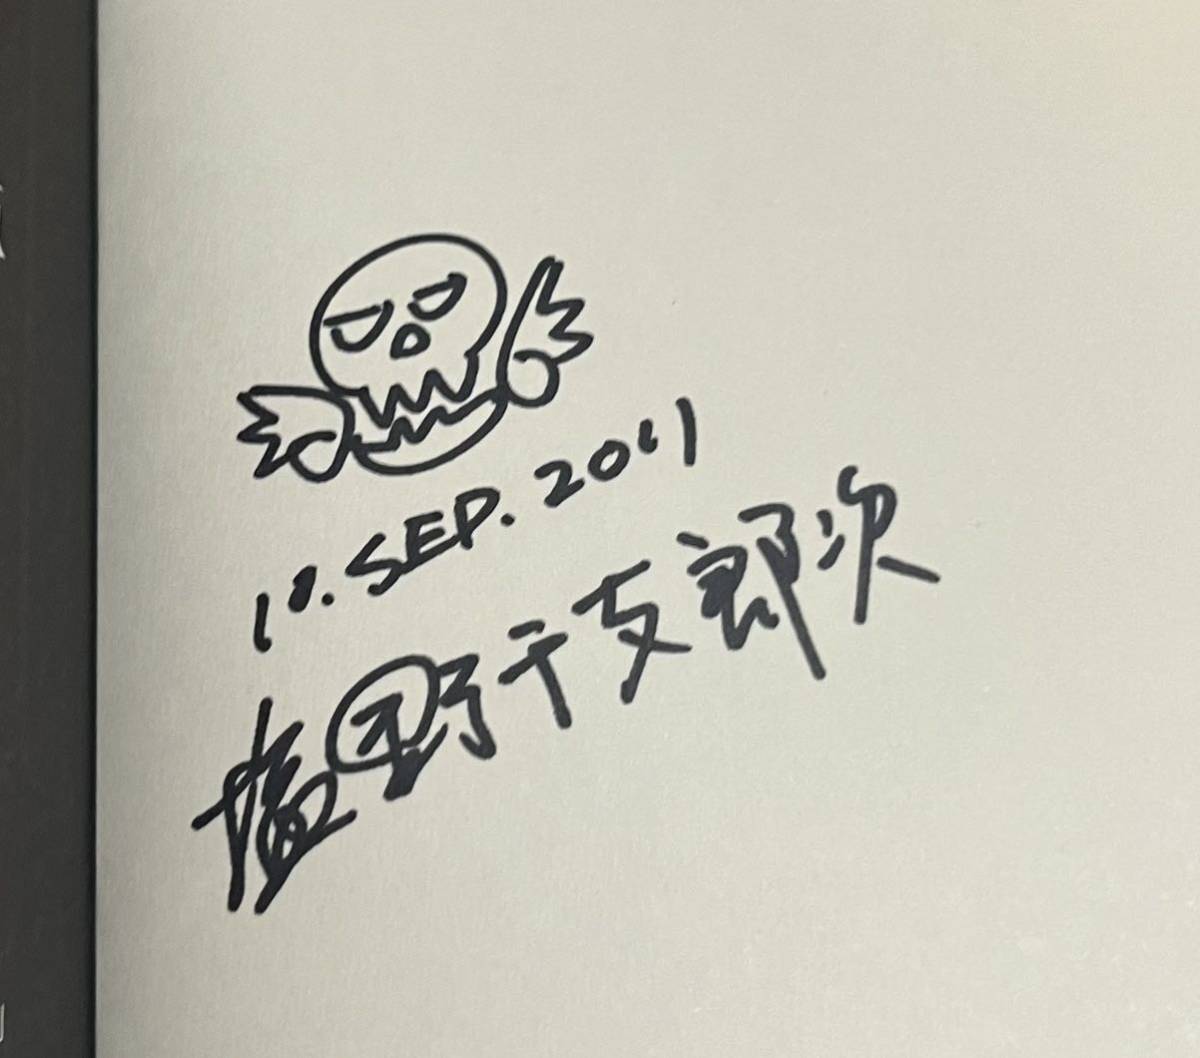 10.SEP.2011
塩野干支郎次